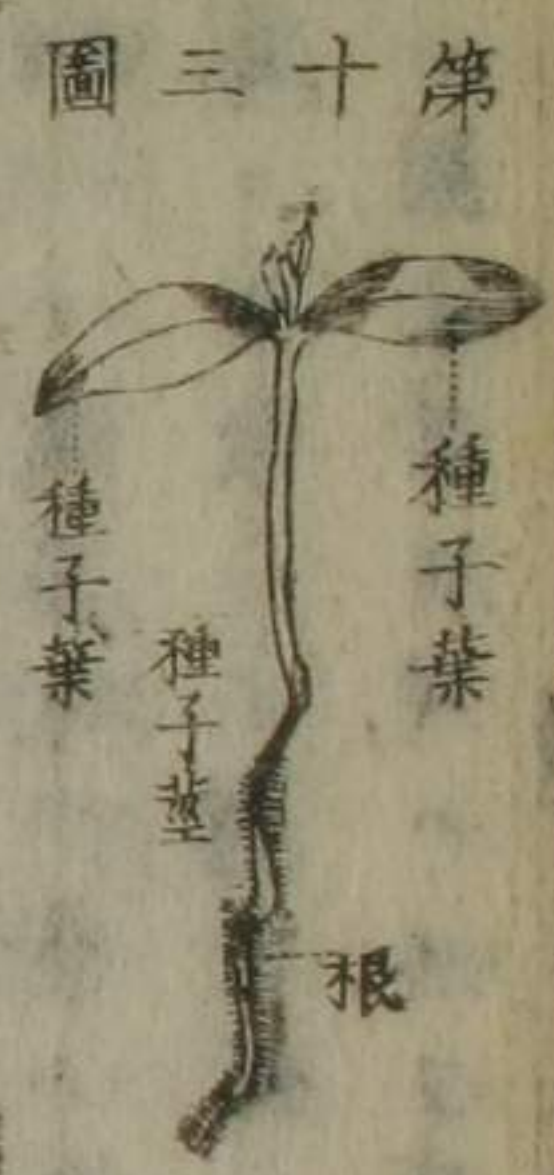 第十三圖
種子葉
種子葉
種子莖
根